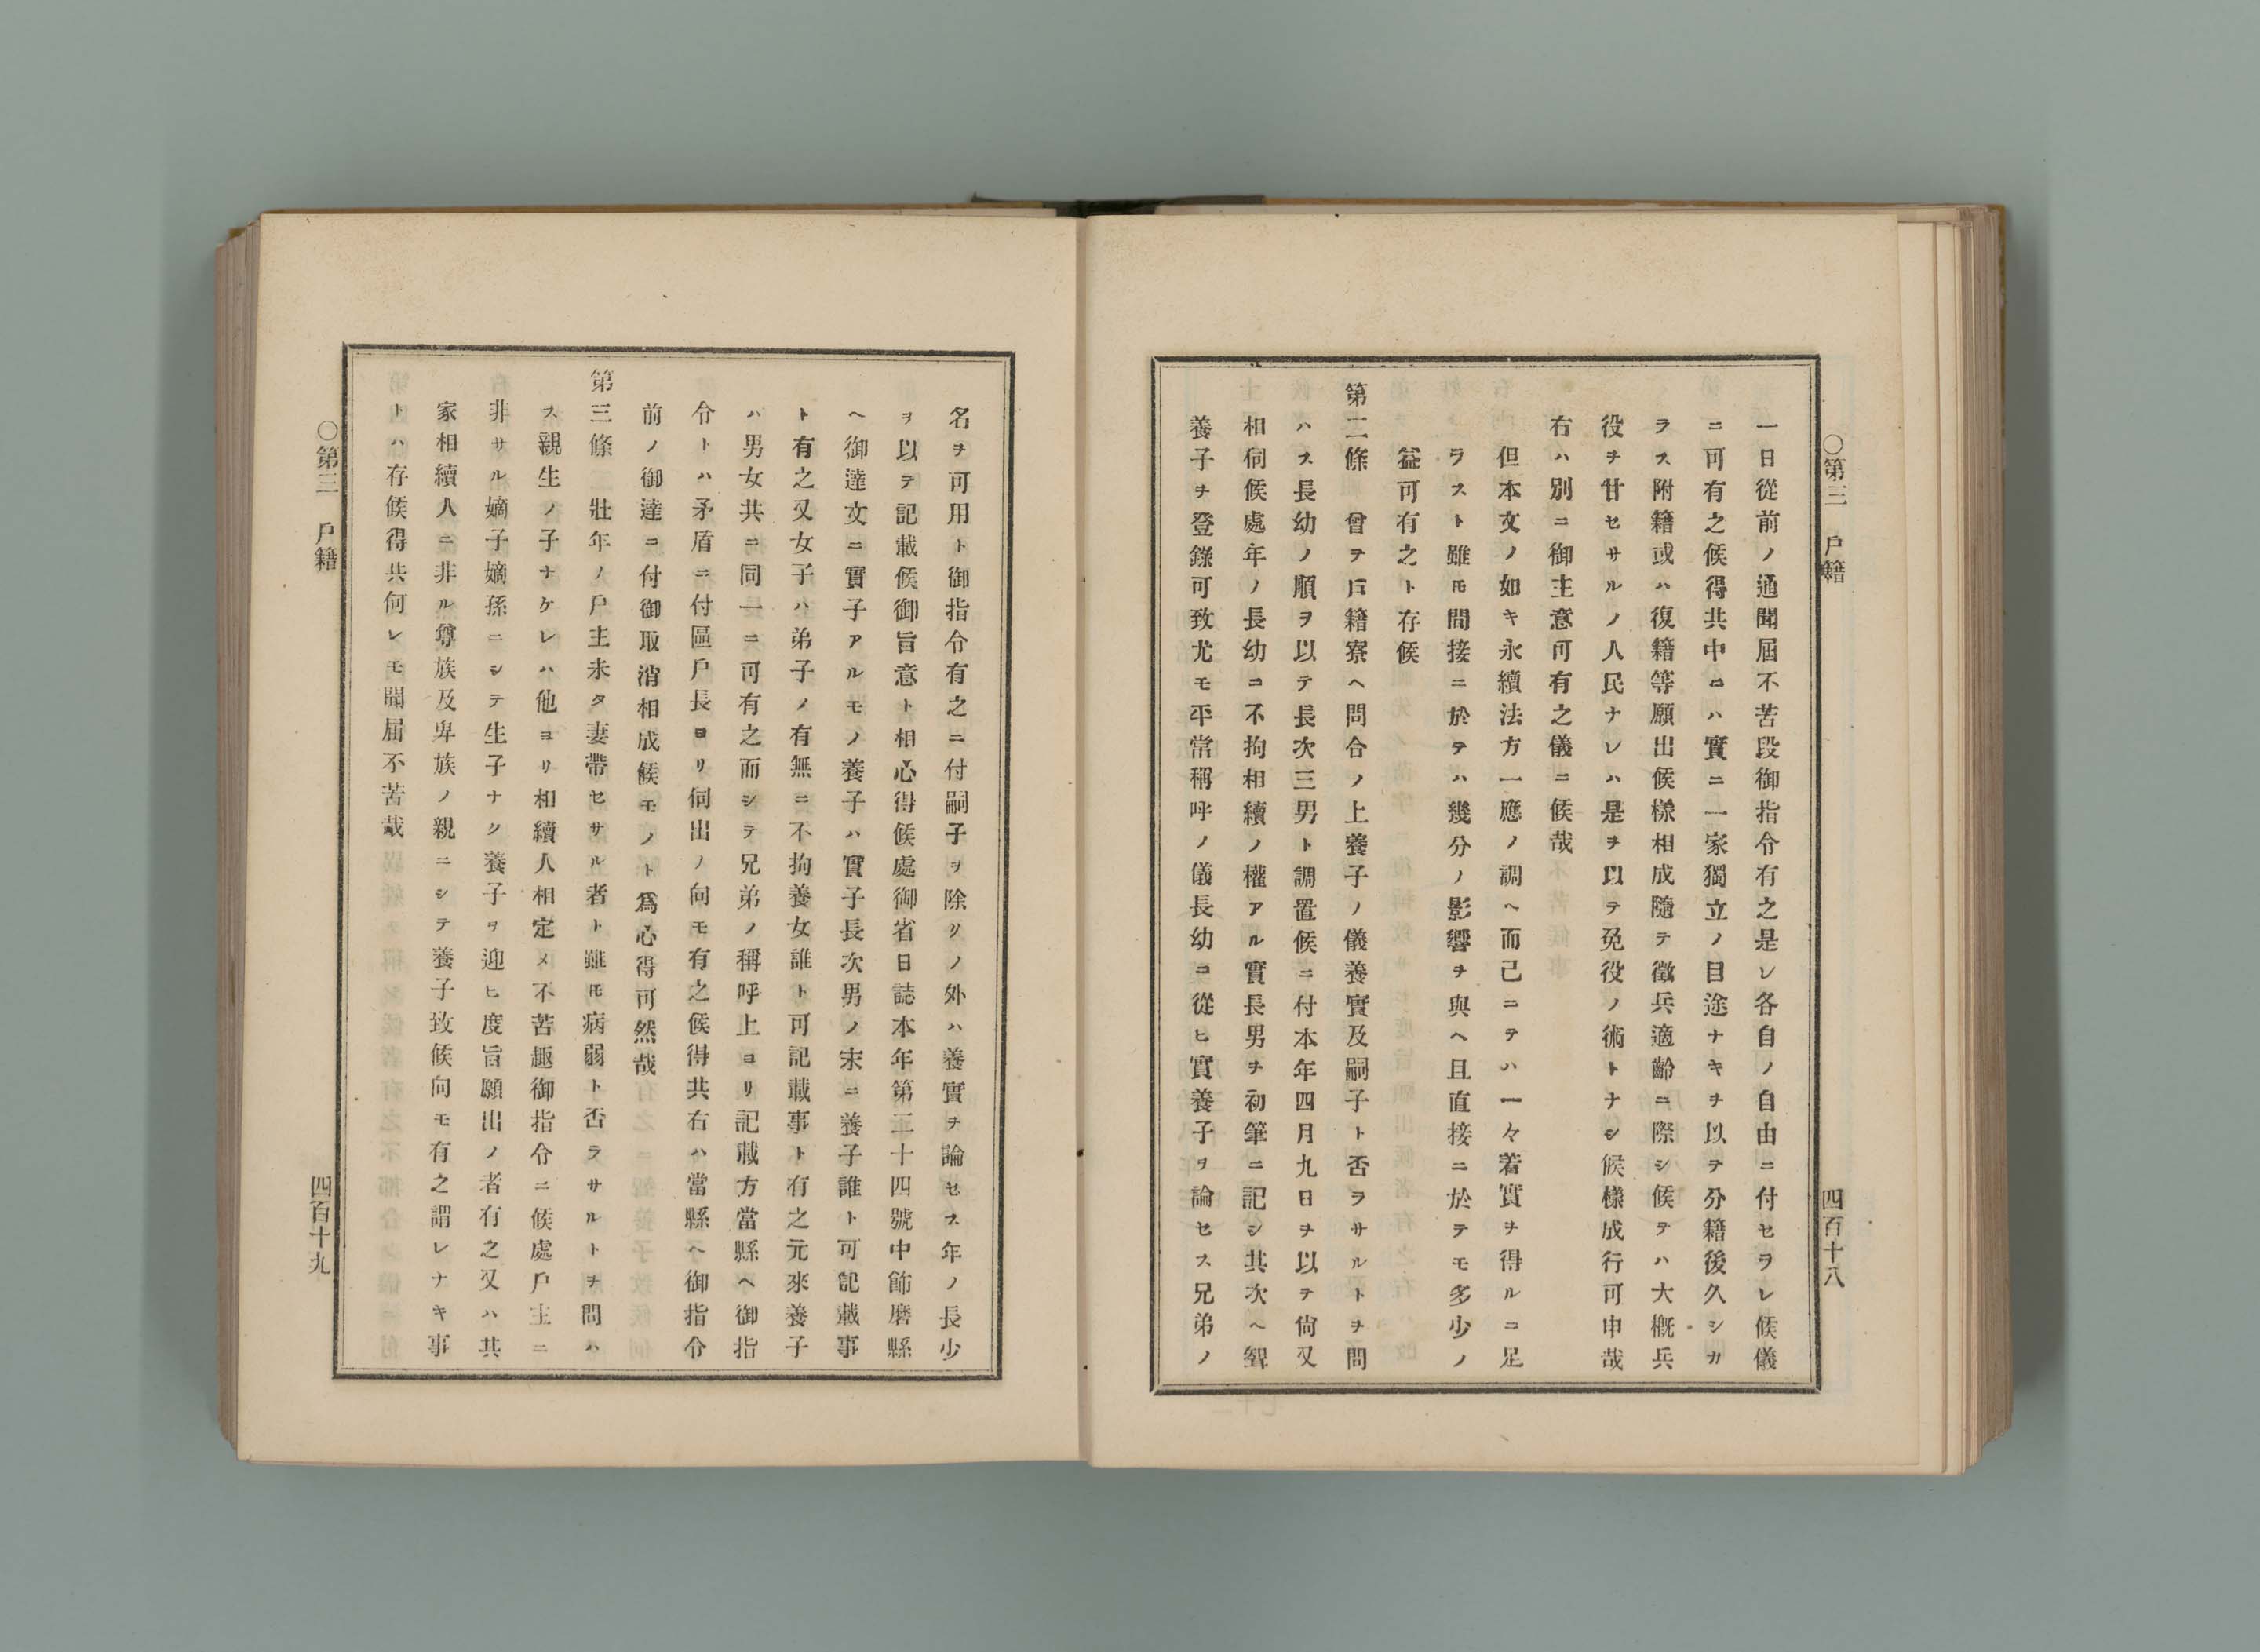 ○第三　戸籍　四百十八
一日從前ノ通聞屆不苦段御指令有之是レ各自ノ自由ニ付セラレ候儀
ニ可有之候得共中ニハ實ニ一家獨立ノ目途ナキヲ以テ分籍後久シカ
ラス附籍或ハ復籍等願出候樣相成隨テ徵兵適齡ニ際シ候テハ大槪兵
役ヲ甘セサルノ人民ナレハ是ヲ以テ免役ノ術トナシ候樣成行可申哉
右ハ別ニ御主意可有之儀ニ候哉
但本文ノ如キ永續法方一應ノ調ヘ而己ニテハ一々着實ヲ得ルニ足
ラスト雖モ間接ニ於テハ幾分ノ影響ヲ與ヘ且直接ニ於テモ多少ノ
益可有之ト存候
第二條　曾ヲ戸籍寮ヘ問合ノ上養子ノ儀養實及嗣子ト否ヲサルトヲ問
ハス長幼ノ順ヲ以テ長次三男ト調置候ニ付本年四月九日ヲ以テ尙又
相伺候處年ノ長幼ニ不拘相續ノ權アル實長男ヲ初筆ニ記シ其次ヘ聟
養子ヲ登錄可致尤モ平常稱呼ノ儀長幼ニ從ヒ實養子ヲ論セス兄弟ノ
名ヲ可用ト御指令有之ニ付嗣子ヲ除リノ外ハ養實ヲ論セス年ノ長少
ヲ以テ記載候御旨意ト相心得候處御省日誌本年第三十四號中飾磨縣
ヘ御達文ニ實子アルモノ養子ハ實子長次男ノ末ニ養子誰ト可記載事
ト有之又女子ハ弟子ノ有無ニ不拘養女誰ト可記載事ト有之元來養子
ハ男女共ニ同一ニ可有之而シテ兄弟ノ稱呼上ヨリ記載方當縣ヘ御指
令トハ矛盾ニ付區戸長ヨリ伺出ノ向モ有之候得共右ハ當縣ヘ御指令
前ノ御達ニ付御取消相成候モノト爲心得可然哉
第三條　壯年ノ戸主未タ妻帶セサル者ト雖モ病弱ト否ラサルトヲ問ハ
ス親生ノ子ナケレハ他ヨリ相續人相定メ不苦趣御指令ニ候處戸主ニ
非サル嫡子嫡孫ニシテ生子ナク養子ヲ迎ヒ度旨願出ノ者有之又ハ其
家相續人ニ非ル尊族及卑族ノ親ニシテ養子致候向モ有之謂レナキ事
トハ存候得共何レモ聞屆不苦哉
○第三　戸籍　四百十九